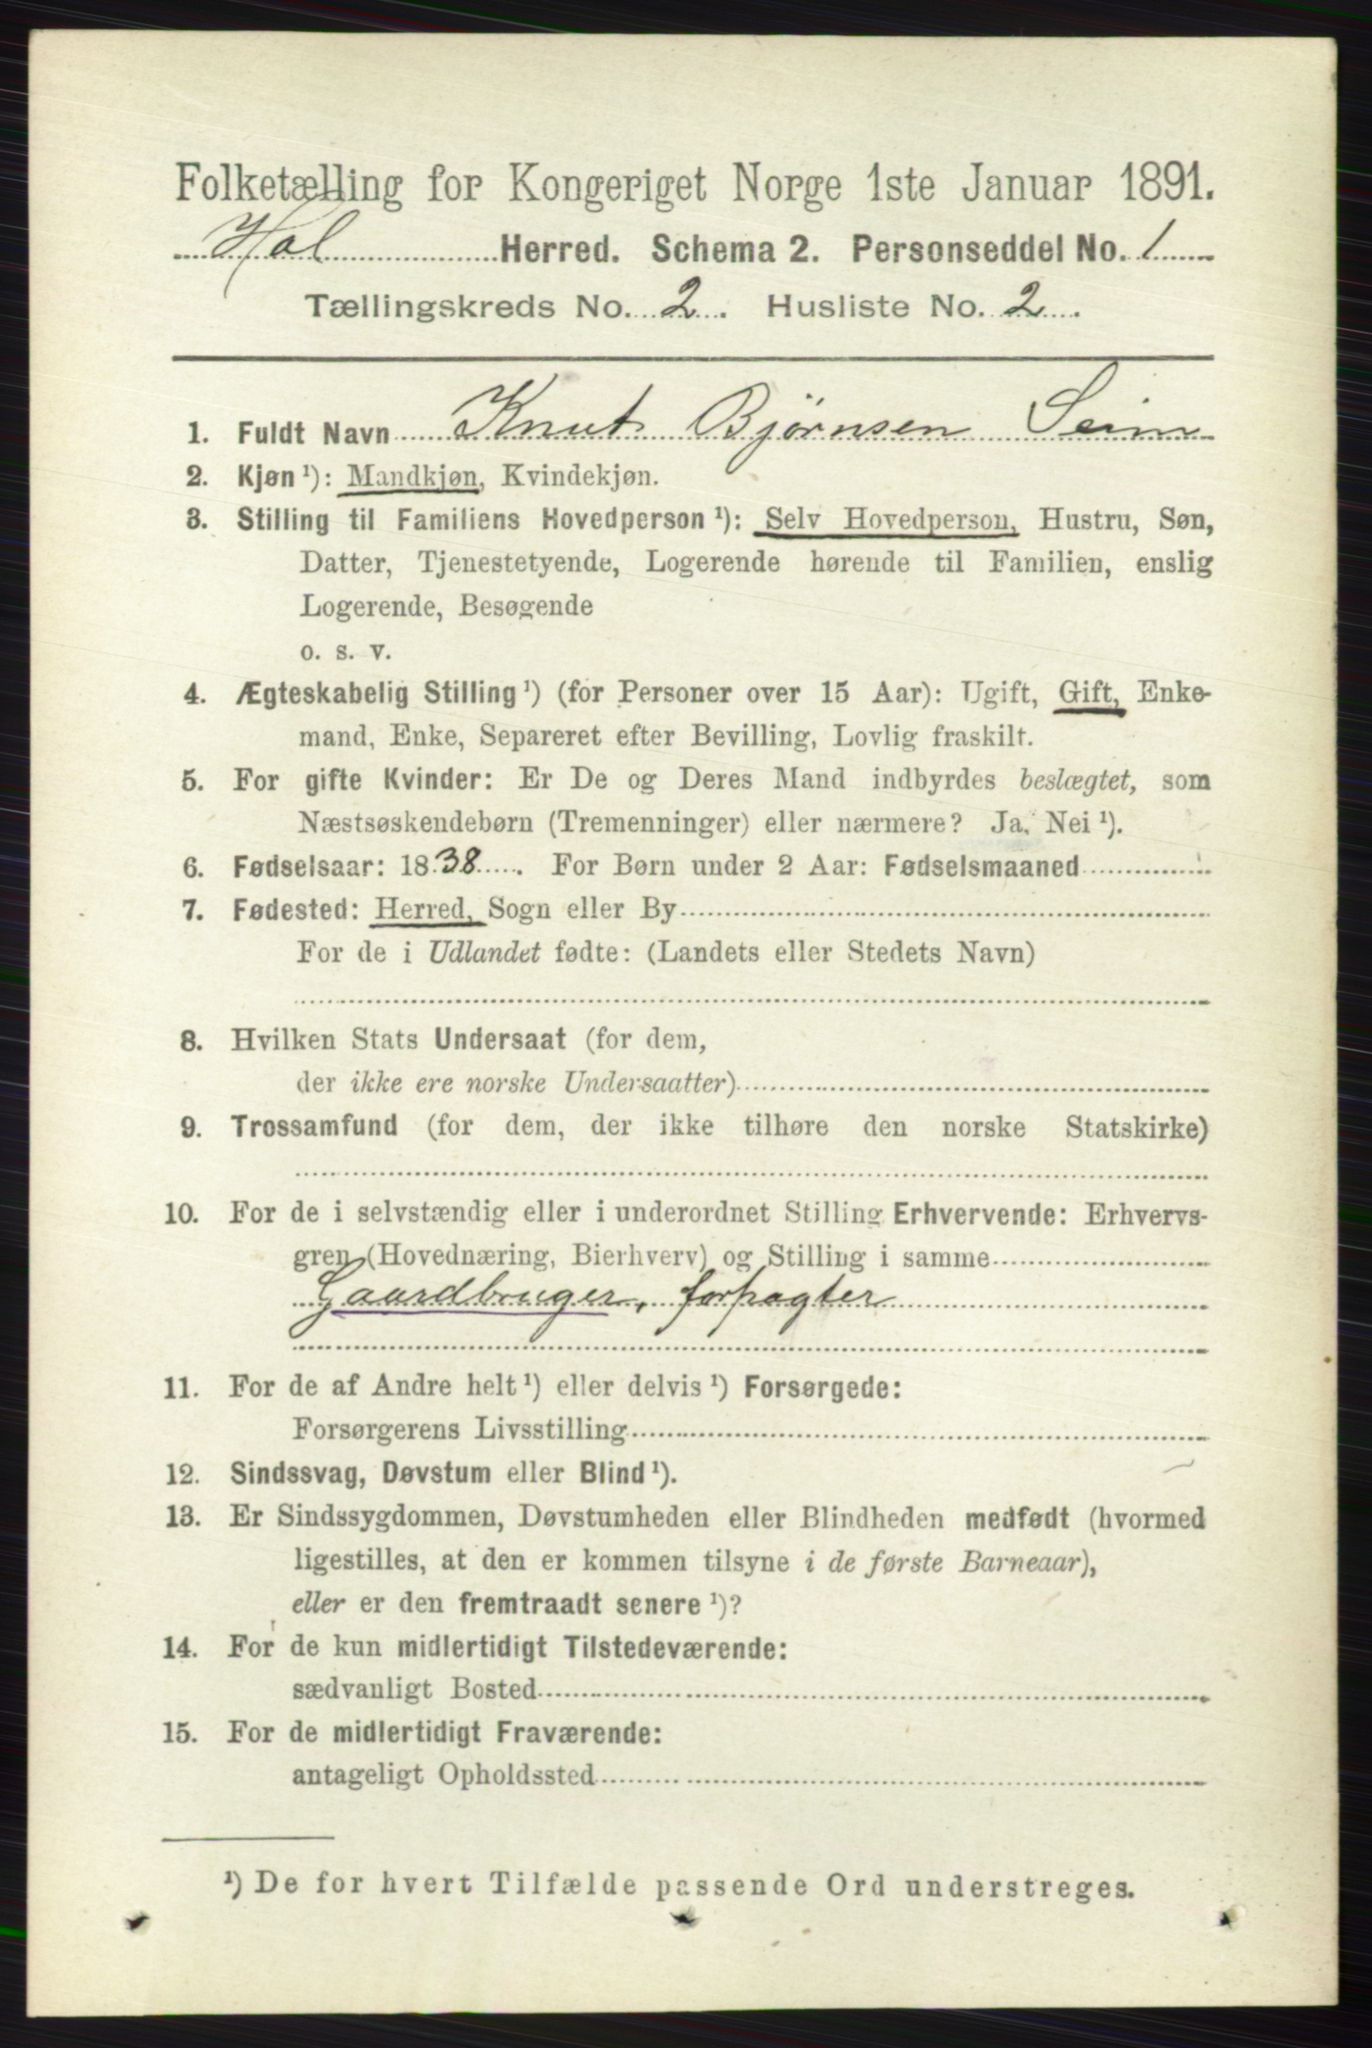 Folketælling for Kongeriget Norge 1ste Januar 1891.
Hol Herred. Schema 2. Personseddel No. 1
Tællingskreds No. 2. Husliste No. 2.
1. Fuldt Navn Knut Bjørnsen Seim
2. Kjøn ¹): Mandkjøn, Kvindekjøn.
3. Stilling til Familiens Hovedperson ¹): Selv Hovedperson, Hustru, Søn,
Datter, Tjenestetyende, Logerende hørende til Familien, enslig
Logerende, Besøgende
o. s. v.
4. Ægteskabelig Stilling ¹) (for Personer over 15 Aar): Ugift, Gift, Enke-
mand, Enke, Separeret efter Bevilling, Lovlig fraskilt.
5. For gifte Kvinder: Er De og Deres Mand indbyrdes beslægtet, som
Næstsøskendebørn (Tremenninger) eller nærmere? Ja, Nei ¹).
6. Fødselsaar: 1838. For Børn under 2 Aar: Fødselsmaaned
7. Fødested: Herred, Sogn eller By
For de i Udlandet fødte: (Landets eller Stedets Navn)
8. Hvilken Stats Undersaat (for dem,
der ikke ere norske Undersaatter)
9. Trossamfund (for dem, der ikke tilhøre den norske Statskirke)
10. For de i selvstændig eller i underordnet Stilling Erhvervende: Erhvervs-
gren (Hovednæring, Bierhverv) og Stilling i samme
Gaardbruger, forpagter
11. For de af Andre helt ¹) eller delvis ¹) Forsørgede:
Forsørgerens Livsstilling
12. Sindssvag, Døvstum eller Blind ¹).
13. Er Sindssygdommen, Døvstumheden eller Blindheden medfødt (hvormed
ligestilles, at den er kommen tilsyne i de første Barneaar),
eller er den fremtraadt senere ¹)?
14. For de kun midlertidigt Tilstedeværende:
sædvanligt Bosted
15. For de midlertidigt Fraværende:
antageligt Opholdssted
¹) De for hvert Tilfælde passende Ord understreges.